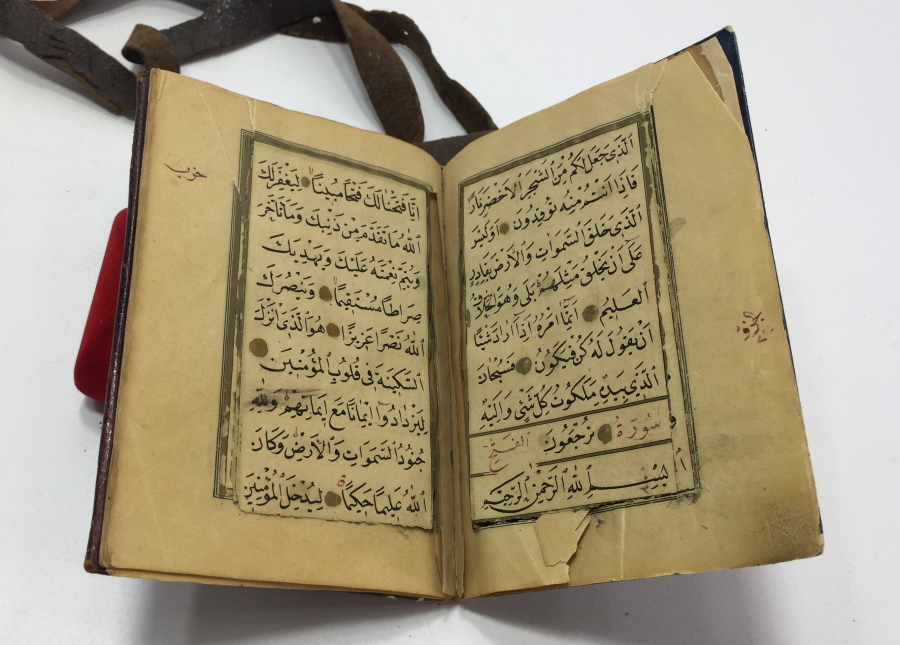 الَّذِى جَعَلَ لَكُمْ مِنَ الشَّجَرِ الْاَخْضَرِ نَارًا
فَاِذَا اَنْتُمْ مِنْهُ تُوقِدُونَ اَوَلَيْسَ
الَّذِى خَلَقَ السَّمٰوَاتِ وَالْاَرْضَ بِقَادِرٍ
عَلٰى اَنْ يَخْلُقَ مِثْلَهُمْ بَلٰى وَهُوَ الْخَلَّاقُ
الْعَلِيمُ اِنَّمَا اَمْرُهُ اِذَا اَرَادَ شَيْئًا
اَنْ يَقُولَ لَهُ كُنْ فَيَكُونُ فَسُبْحَانَ
الَّذِى بِيَدِهِ مَلَكُوتُ كُلِّ شَىْءٍ وَاِلَيْهِ
سُورَة تُرْجَعُونَ الفتح
بِسْمِ اللهِ الرَّحْمٰنِ الرَّحِيمِ
حزب
اِنَّا فَتَحْنَا لَكَ فَتْحًا مُبِينًا لِيَغْفِرَ لَكَ
اللهُ مَا تَقَدَّمَ مِنْ ذَنْبِكَ وَمَا تَاَخَّرَ
وَيُتِمَّ نِعْمَتَهُ عَلَيْكَ وَيَهْدِيَكَ
صِرَاطًا مُسْتَقِيمًا وَيَنْصُرَكَ
اللهُ نَصْرًا عَزِيزًا هُوَ الَّذِى اَنْزَلَ
السَّكِينَةَ فِى قُلُوبِ الْمُؤْمِنِينَ
لِيَزْدَادُوا اِيمَانًا مَعَ اِيمَانِهِمْ وَلِلّٰهِ
جُنُودُ السَّمٰوَاتِ وَالْاَرْضِ وَكَانَ
اللهُ عَلِيمًا حَكِيمًا لِيُدْخِلَ الْمُؤْمِنِينَ